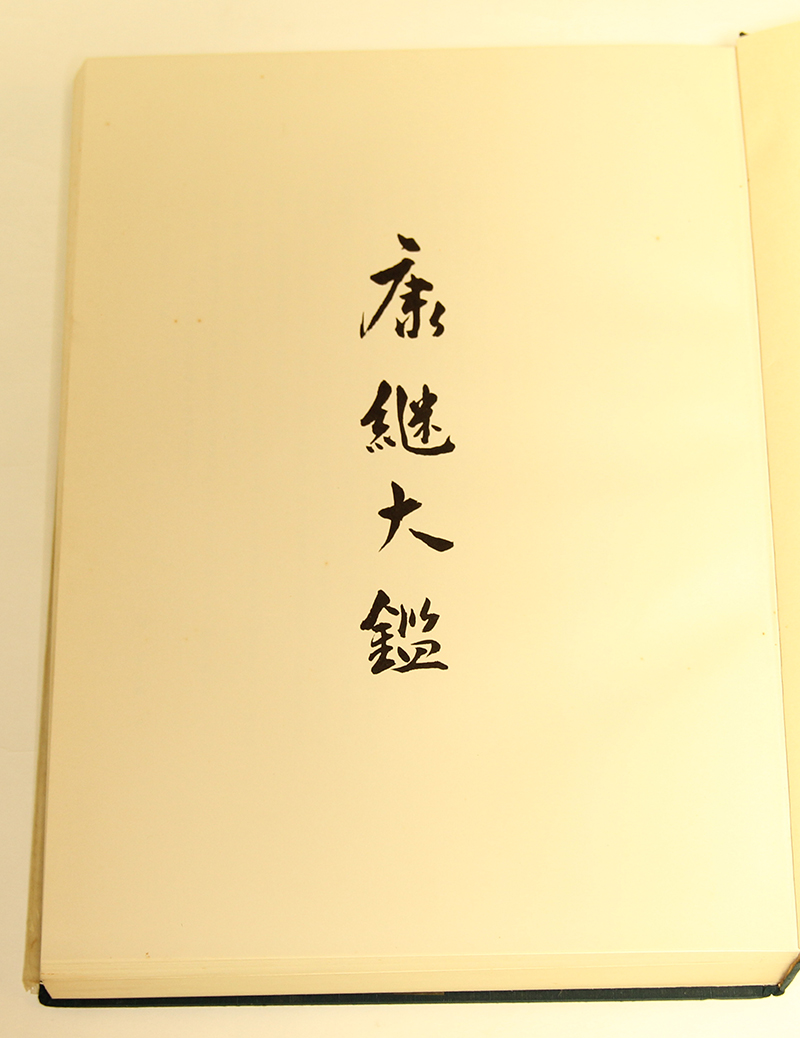 康継大鑑